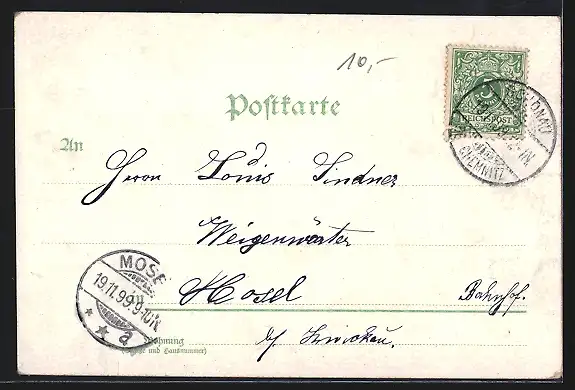 10,-
Postkarte
5
REICHSPOST
SCHÖNAU
CHEMNITZ
An
Herrn Louis Lindner
Weigenwärter
Mosel
Bahnhof.
b/ Zwickau.
MOSEL
19.11.99. 9-10N.
* * a
Wohnung
(Straße und Hausnummer)